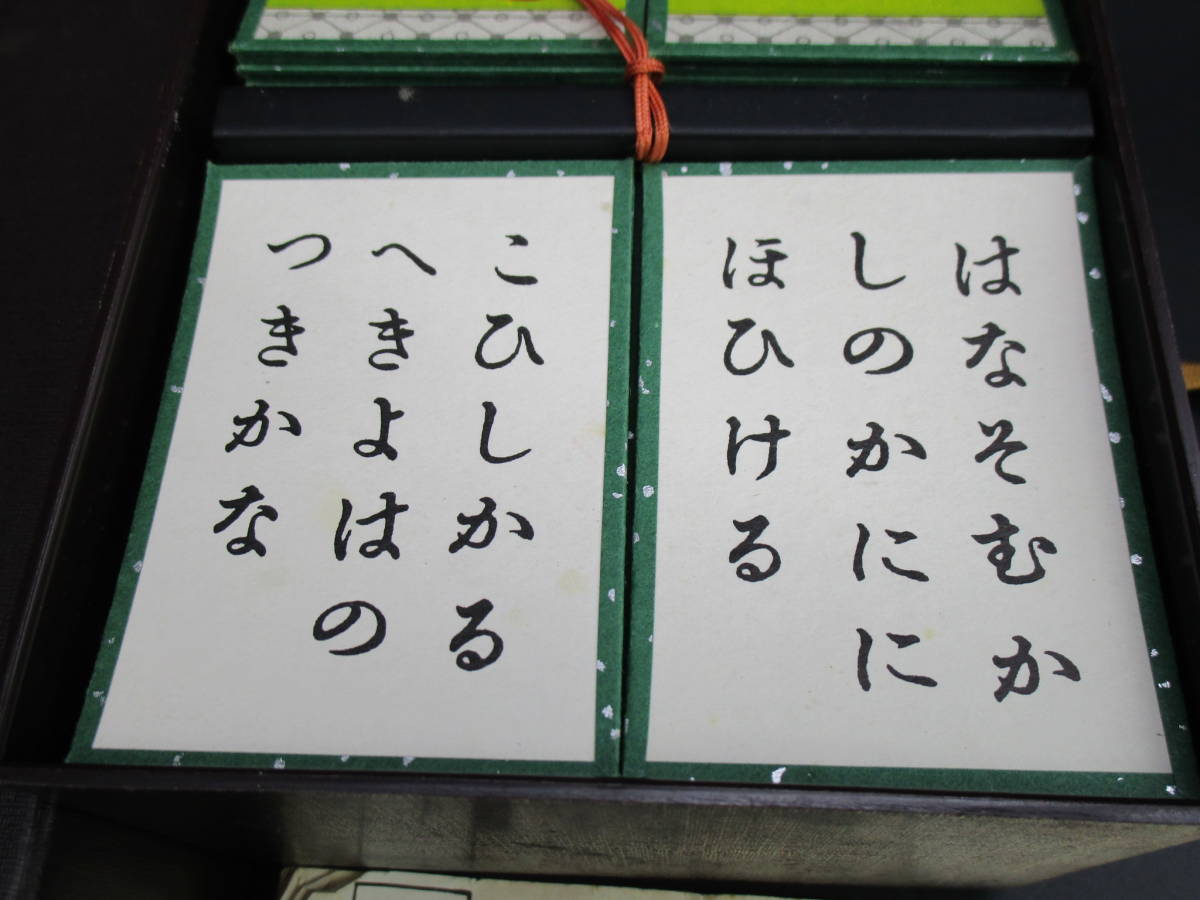 はなそむか
しのかにに
ほひける
こひしかる
へきよはの
つきかな